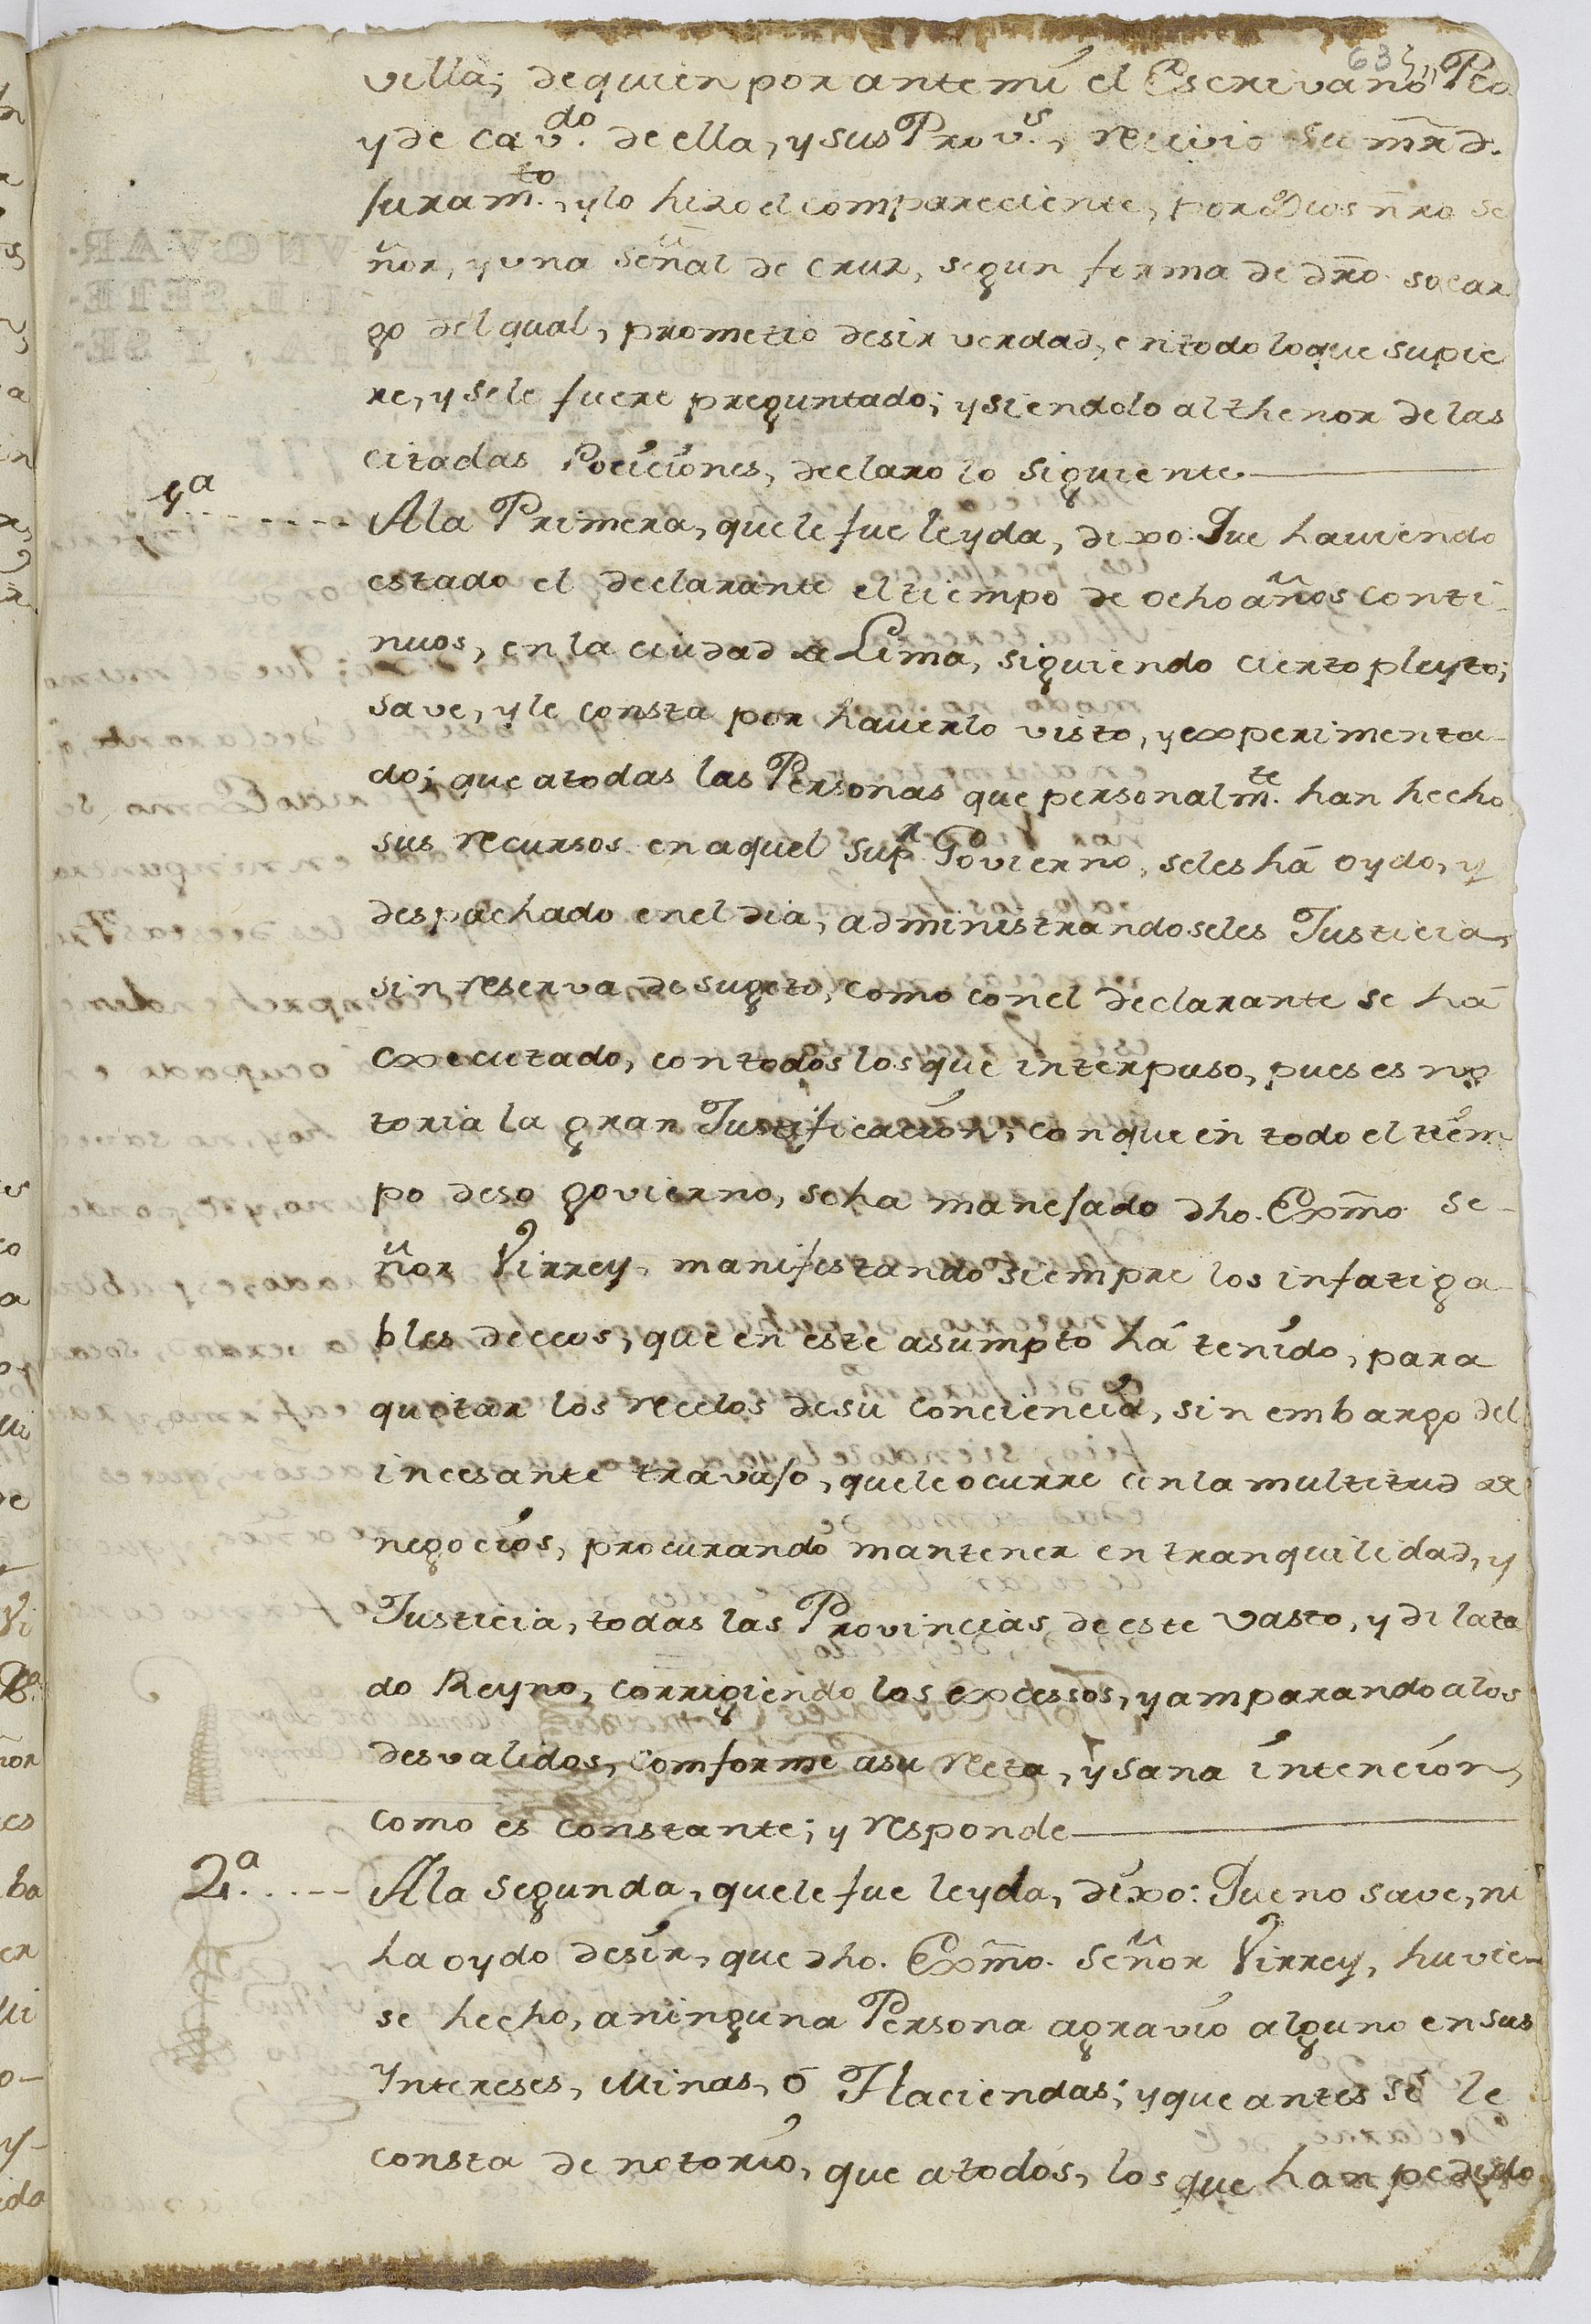 63
villa; de quien por ante mi el Escrivano, Pco
y de cav.do de ella, y sus Prov.s, recivio su mrd.
juram.to, y lo hizo el compareciente, por Dios ñro se
ñor, y una señal de cruz, segun forma de dro. socar
go del qual, prometio desir verdad, en todo lo que supie
re, y se le fuere preguntado; y siendolo al thenor de las
citadas Pociciones, declaro lo siguiente
1.a A la Primera, que le fue leyda, dixo: Que haviendo
estado el declarante el tiempo de ocho años conti-
nuos, en la ciudad de Lima, siguiendo cierto pleyto;
save, y le consta por haverlo visto, y experimenta-
do; que a todas las Personas que personalm.te han hecho
sus recursos en aquel Sup.r Govierno, se les há oydo, y
despachado en el dia, administrandoseles Justicia,
sin reserva de sugeto, como con el declarante se há
executado, con todos los que interpuso, pues es no
toria la gran Justificacion, con que en todo el tiem
po de so govierno, se ha manejado dho. Exmo. Se-
ñor Virrey, manifestando siempre los infatiga-
bles deceos, que en este asumpto há tenido, para
quitar los recelos de su conciencia, sin embargo del
incesante travajo, que le ocurre con la multitud de
negocios, procurando mantener en tranquilidad, y
Justicia, todas las Provincias de este vasto, y dilata
do Reyno, corrigiendo los excessos, y amparando a los
desvalidos, comforme a su recta, y sana intencion,
como es constante; y responde
2.a A la segunda, que le fue leyda, dixo: Que no save, ni
ha oydo desir, que dho. Exmo. Señor Virrey, huvie-
se hecho, a ninguna Persona agravio alguno en sus
Yntereses, Minas, ó Haciendas; y que antes si le
consta de notorio, que a todos, los que han pedido